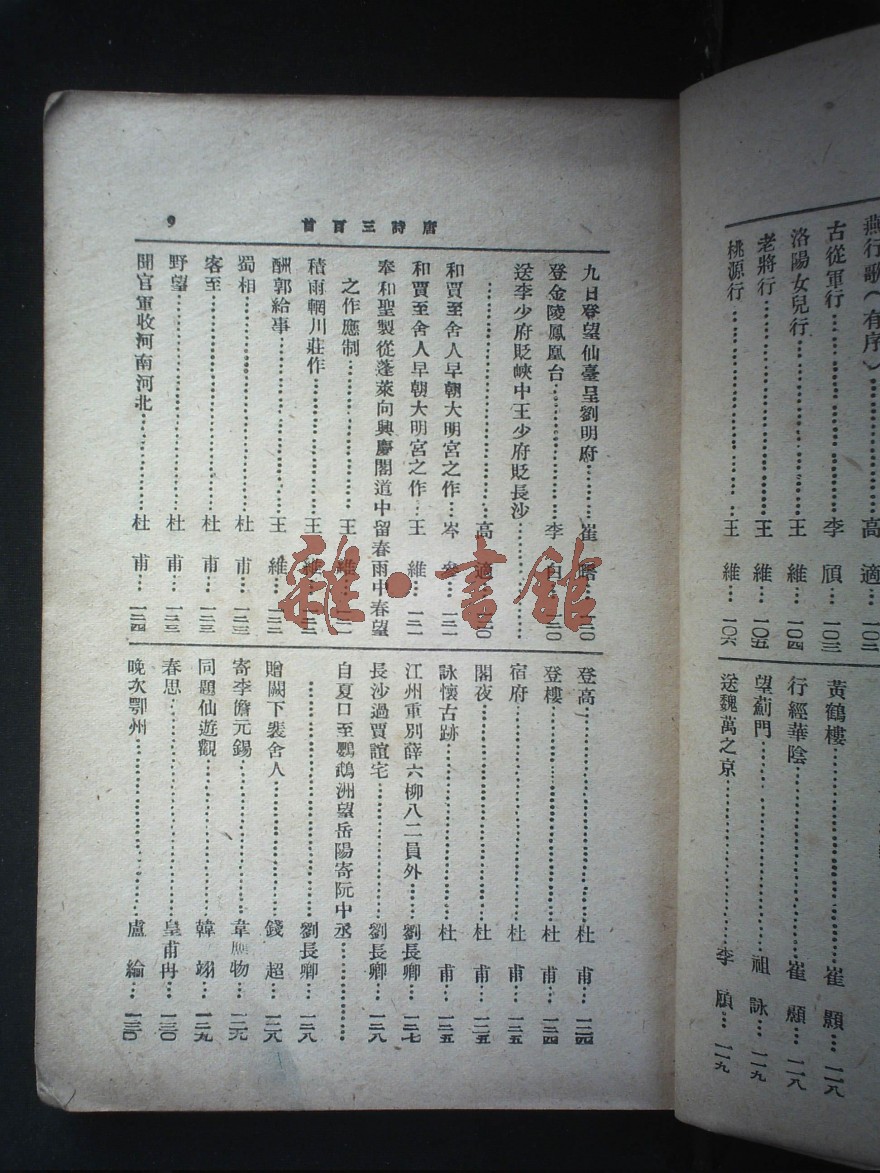 燕行歌(有序)……高適…一〇二
古從軍行……李頎…一〇三
洛陽女兒行……王維…一〇四
老將行……王維…一〇五
桃源行……王維…一〇六
黃鶴樓……崔顥…一一八
行經華陰……崔顥…一一八
望薊門……祖詠…一一九
送魏萬之京……李頎…一一九
唐詩三百首 9
九日登望仙臺呈劉明府……崔曙…一二〇
登金陵鳳凰台……李白…一二〇
送李少府貶峽中王少府貶長沙……
……高適…一二〇
和賈至舍人早朝大明宮之作…岑參…一二一
和賈至舍人早朝大明宮之作…王維…一二一
奉和聖製從蓬萊向興慶閣道中留春雨中春望
之作應制……王維…一二一
積雨輞川莊作……王維…一二二
酬郭給事……王維…一二二
蜀相……杜甫…一二三
客至……杜甫…一二三
野望……杜甫…一二三
聞官軍收河南河北……杜甫…一二四
登高……杜甫…一二四
登樓……杜甫…一二四
宿府……杜甫…一二五
閣夜……杜甫…一二五
詠懷古跡……杜甫…一二五
江州重別薛六柳八二員外……劉長卿…一二七
長沙過賈誼宅……劉長卿…一二八
自夏口至鸚鵡洲望岳陽寄阮中丞……
……劉長卿…一二八
贈闕下裴舍人……錢超…一二八
寄李儋元錫……韋應物…一二九
同題仙遊觀……韓翃…一二九
春思……皇甫冉…一三〇
晚次鄂州……盧綸…一三〇
雜·書館